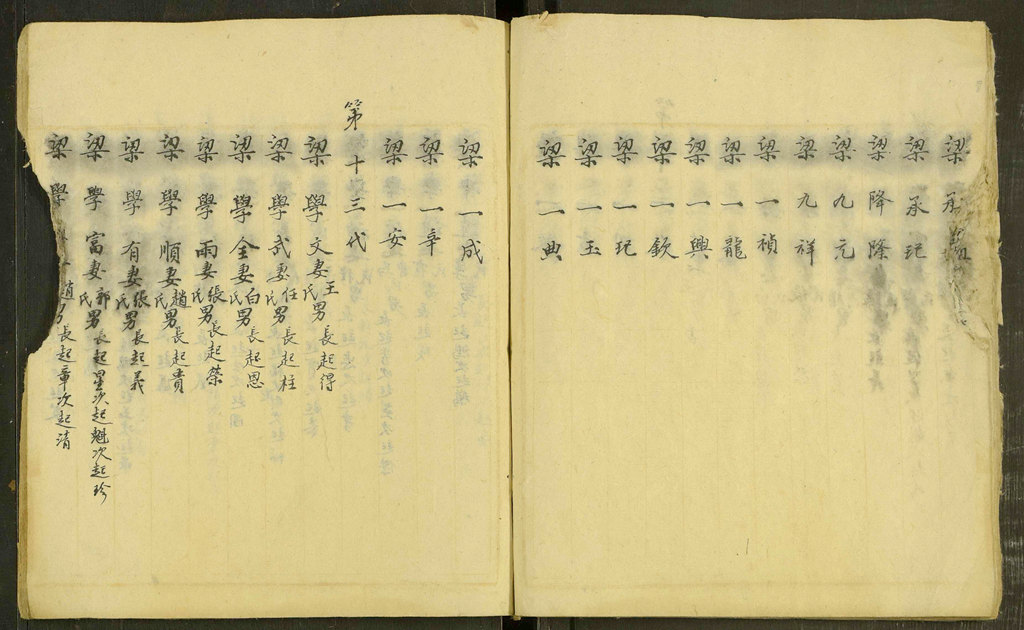 梁承
梁承玘
梁降隆
梁九元
梁九祥
梁一禎
梁一龍
梁一興
梁一欽
梁一玘
梁一玉
梁一典
梁一成
梁一辛
梁一安
第十三代
梁學文妻王氏男長起得
梁學武妻任氏男長起柱
梁學全妻白氏男長起恩
梁學雨妻張氏男長起榮
梁學順妻趙氏男長起貴
梁學有妻張氏男長起義
梁學富妻郭氏男長起星次起魁次起珍
梁學趙男長起章次起清